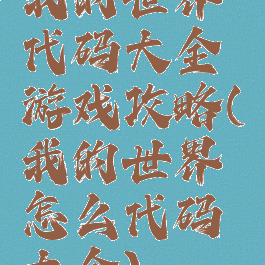 我的世界
代码大全
游戏攻略(
我的世界
怎么代码
大全)